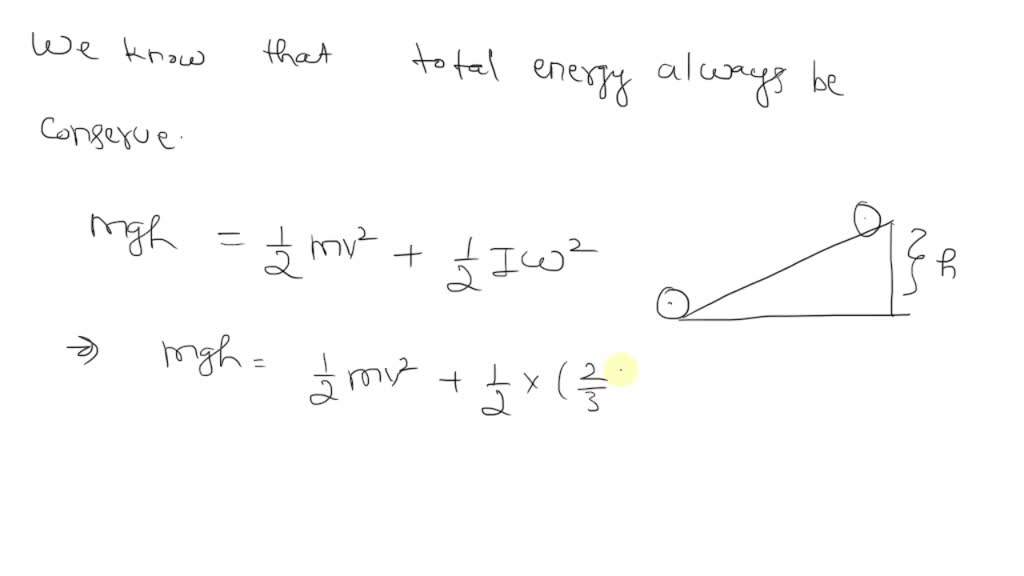 We know that total energy always be
conserve.
mgh = 1/2 mv² + 1/2 Iω²
h
⇒ mgh = 1/2 mv² + 1/2 × (2/3